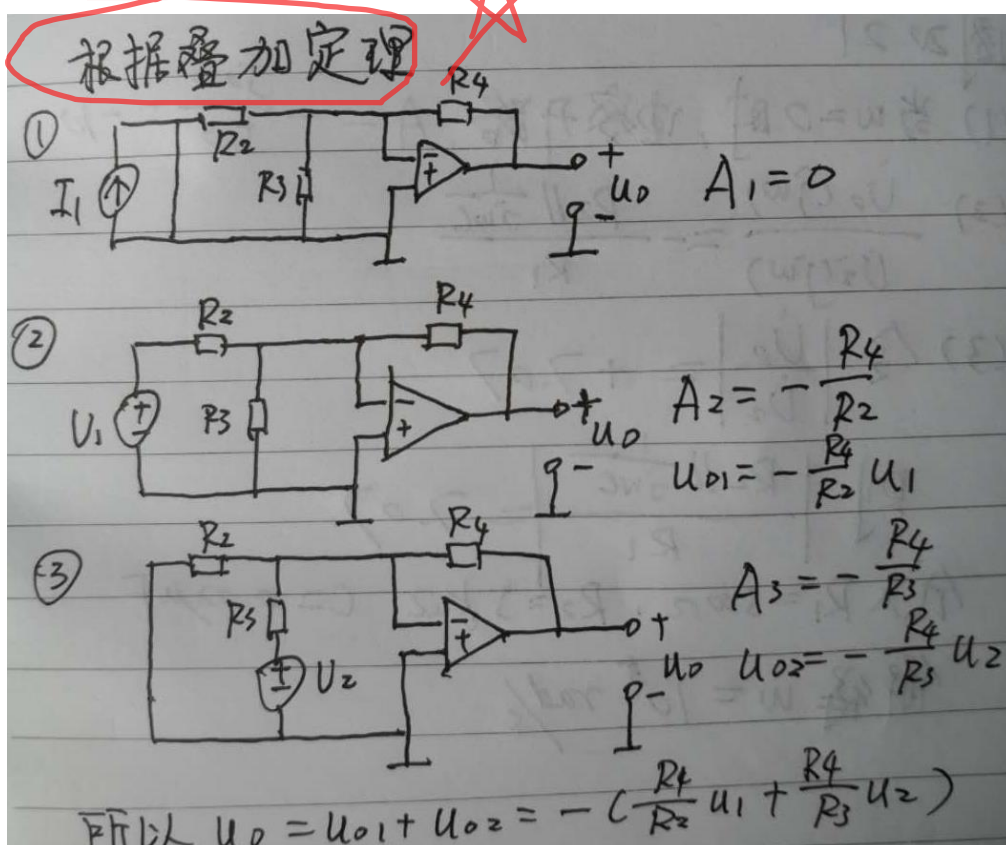 根据叠加定理
① I1 R2 R3 R4 - + + u0 - A1=0
② U1 + - R2 R3 R4 - + + u0 - A2=-R4/R2
u01=-R4/R2 u1
③ R2 R3 U2 + - R4 - + + u0 - A3=-R4/R3
u02=-R4/R3 u2
所以 u0=u01+u02=-(R4/R2 u1+R4/R3 u2)